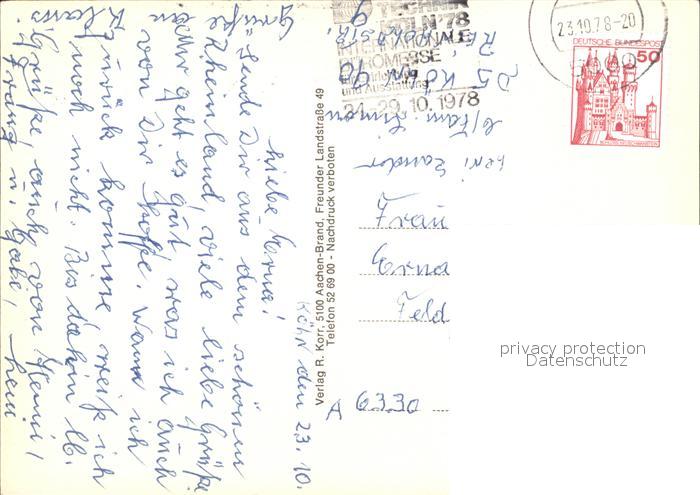 Köln den 23.10.
Liebe Erna!
Sende Dir aus dem schönen
Rheinland, viele liebe Grüße
mir geht es gut, was ich auch
von Dir hoffe. Wann ich
zurück komme, weiß ich
noch nicht. Bis dahin lb.
Grüße, auch von Henni,
Franz u. Gabi,
Heini
Grüße an
Klaus.
Verlag R. Korr, 5100 Aachen-Brand, Freunder Landstraße 49
Telefon 52 69 00 - Nachdruck verboten
TECHNIK
KÖLN '78
INTERNATIONALE
BÜROMESSE
Einrichtung
und Ausstattung
24.-29.10.1978
23.10.78-20
DEUTSCHE BUNDESPOST
50
SCHLOSS NEUSCHWANSTEIN
5 KÖLN 90
Frau
Erna
Feld
A 6330
privacy protection
Datenschutz